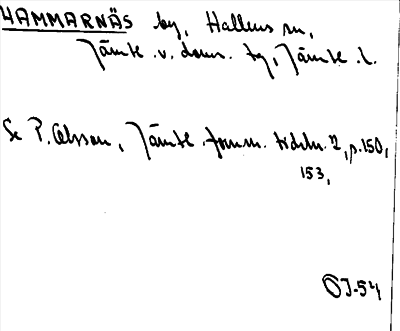 HAMMARNÄS by, Hallens sn,
Jämtl. v. doms. tg, Jämtl. l.
Se P. Olsson, Jämtl. fornm. tidskr. 2, p. 150,
153,
OJ-54